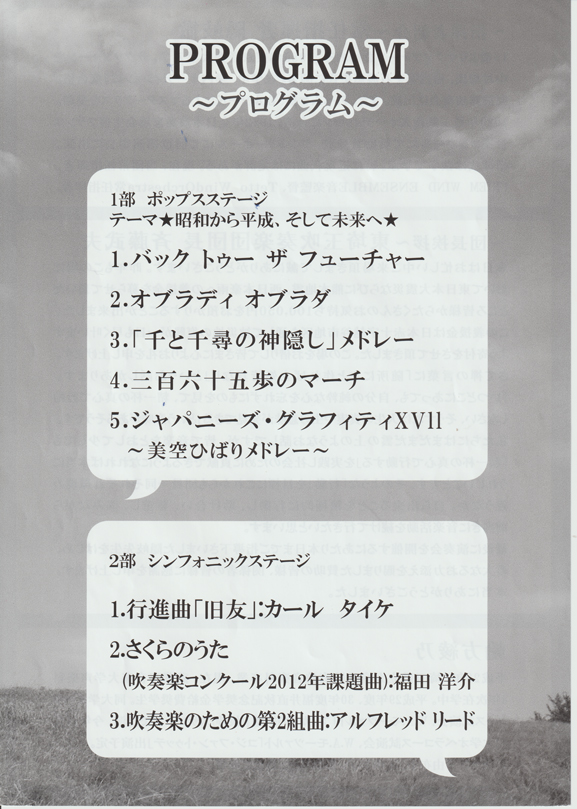 PROGRAM
～プログラム～
1部 ポップスステージ
テーマ★昭和から平成、そして未来へ★
1.バック トゥー ザ フューチャー
2.オブラディ オブラダ
3.「千と千尋の神隠し」メドレー
4.三百六十五歩のマーチ
5.ジャパニーズ・グラフィティXVll
～美空ひばりメドレー～
2部 シンフォニックステージ
1.行進曲「旧友」:カール タイケ
2.さくらのうた
(吹奏楽コンクール2012年課題曲):福田 洋介
3.吹奏楽のための第2組曲:アルフレッド リード